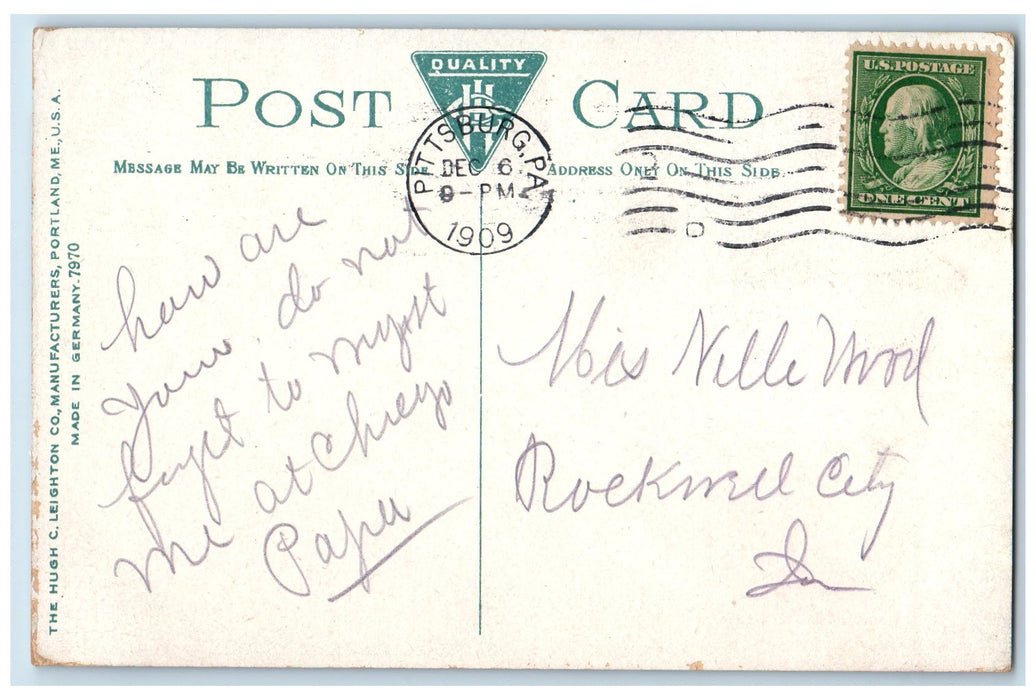 THE HUGH C. LEIGHTON CO., MANUFACTURERS, PORTLAND, ME., U.S.A.
MADE IN GERMANY. 7970
QUALITY
POST CARD
MESSAGE MAY BE WRITTEN ON THIS SIDE
ADDRESS ONLY ON THIS SIDE
PITTSBURG, PA.
DEC 6
9-PM
1909
U.S. POSTAGE
ONE CENT
how are
you do not
forget to
me at Chicago
Papa
Miss Nelle Wood
Rockwell City
Ia